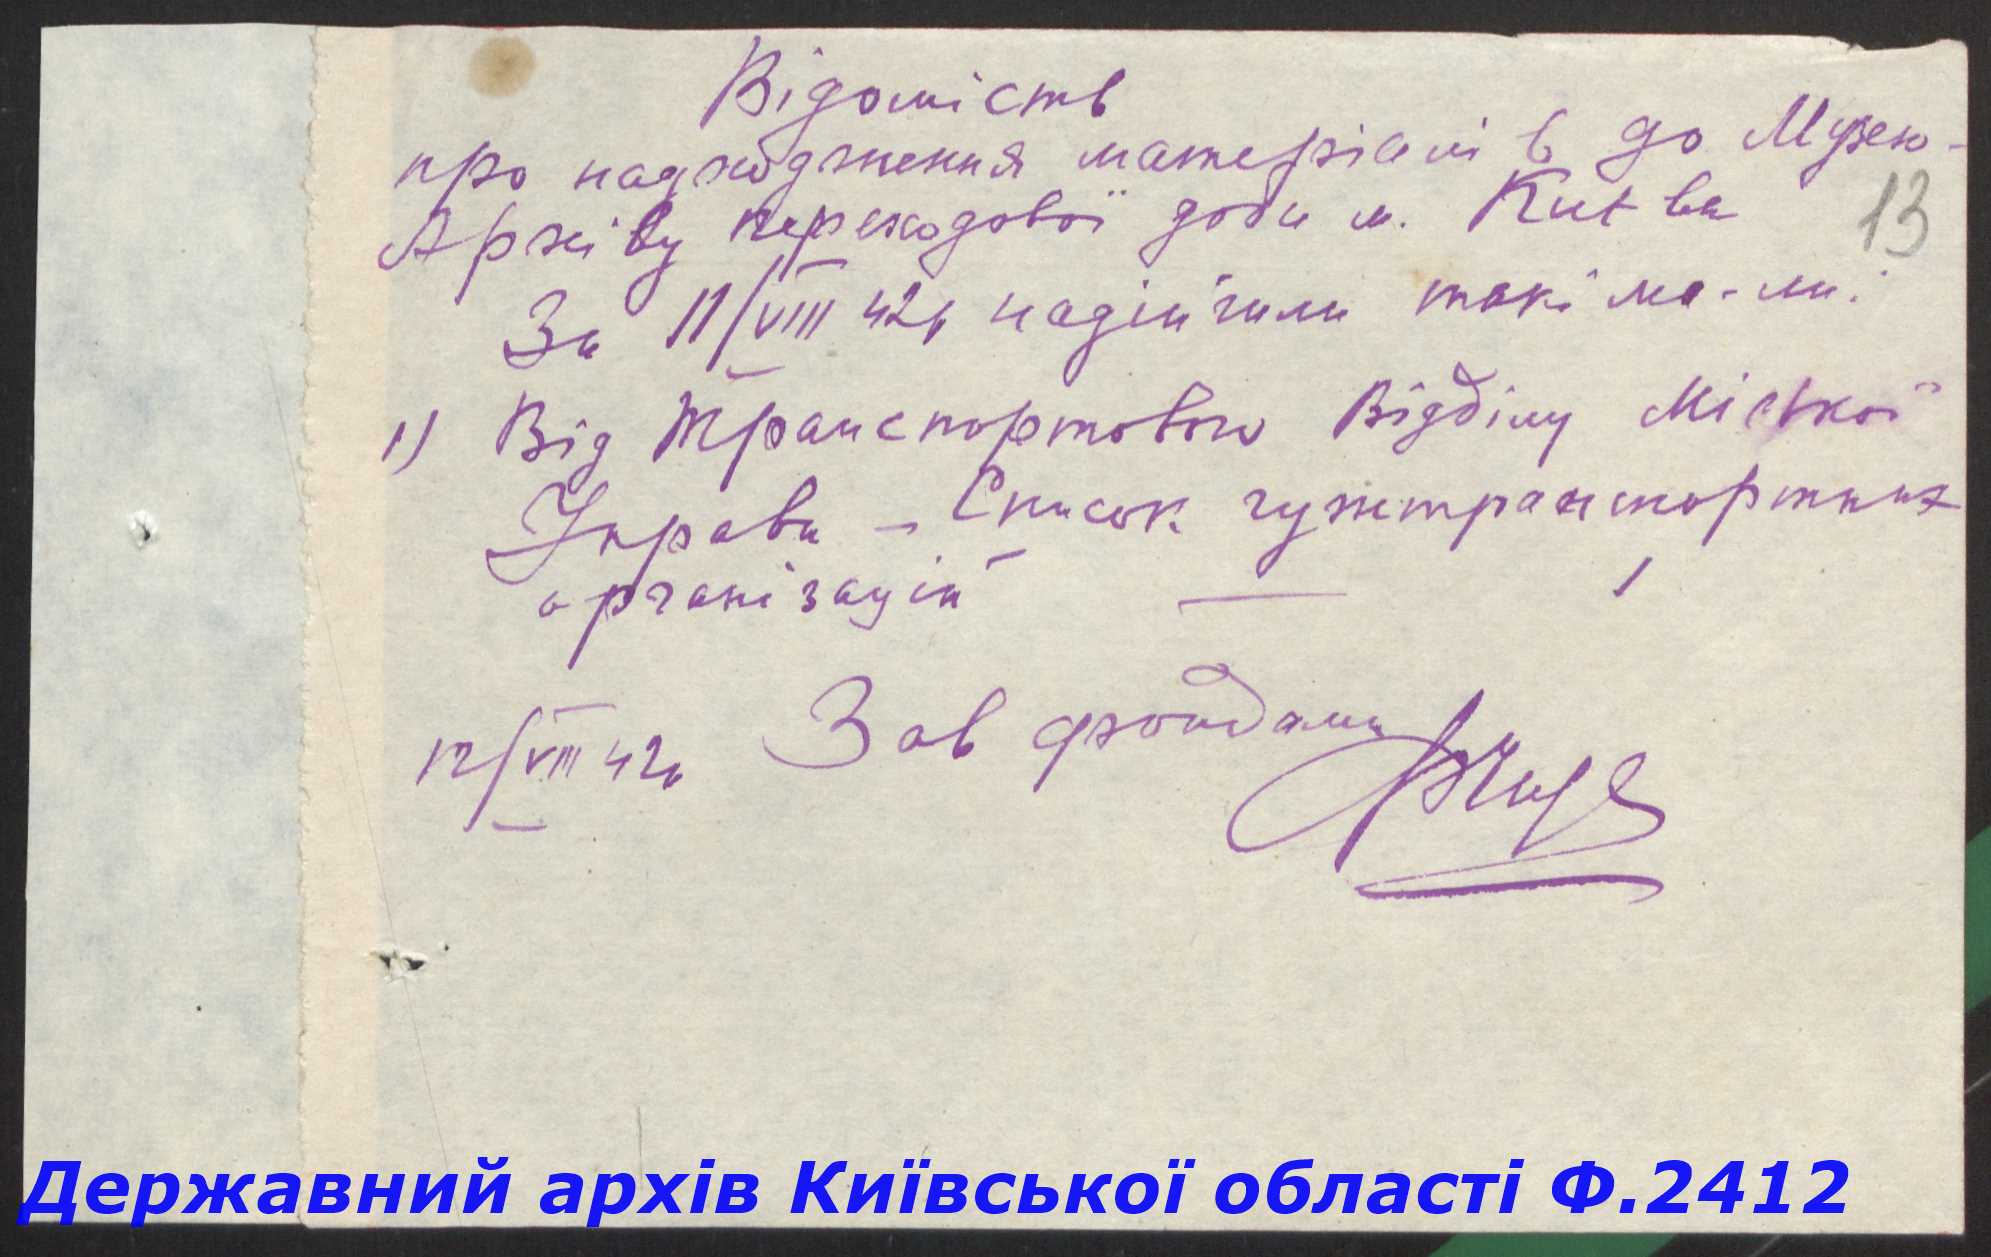 Відомість
про надходження матеріалів до Музею-
Архіву переходової доби м. Києва
13
За 11/VIII 42р надійшли такі ма-ли:
1) Від Транспортового Відділу Міської
Управи – Список гужтранспортних
організацій — 1
12/VIII 42р Зав фондами
Державний архів Київської області Ф.2412